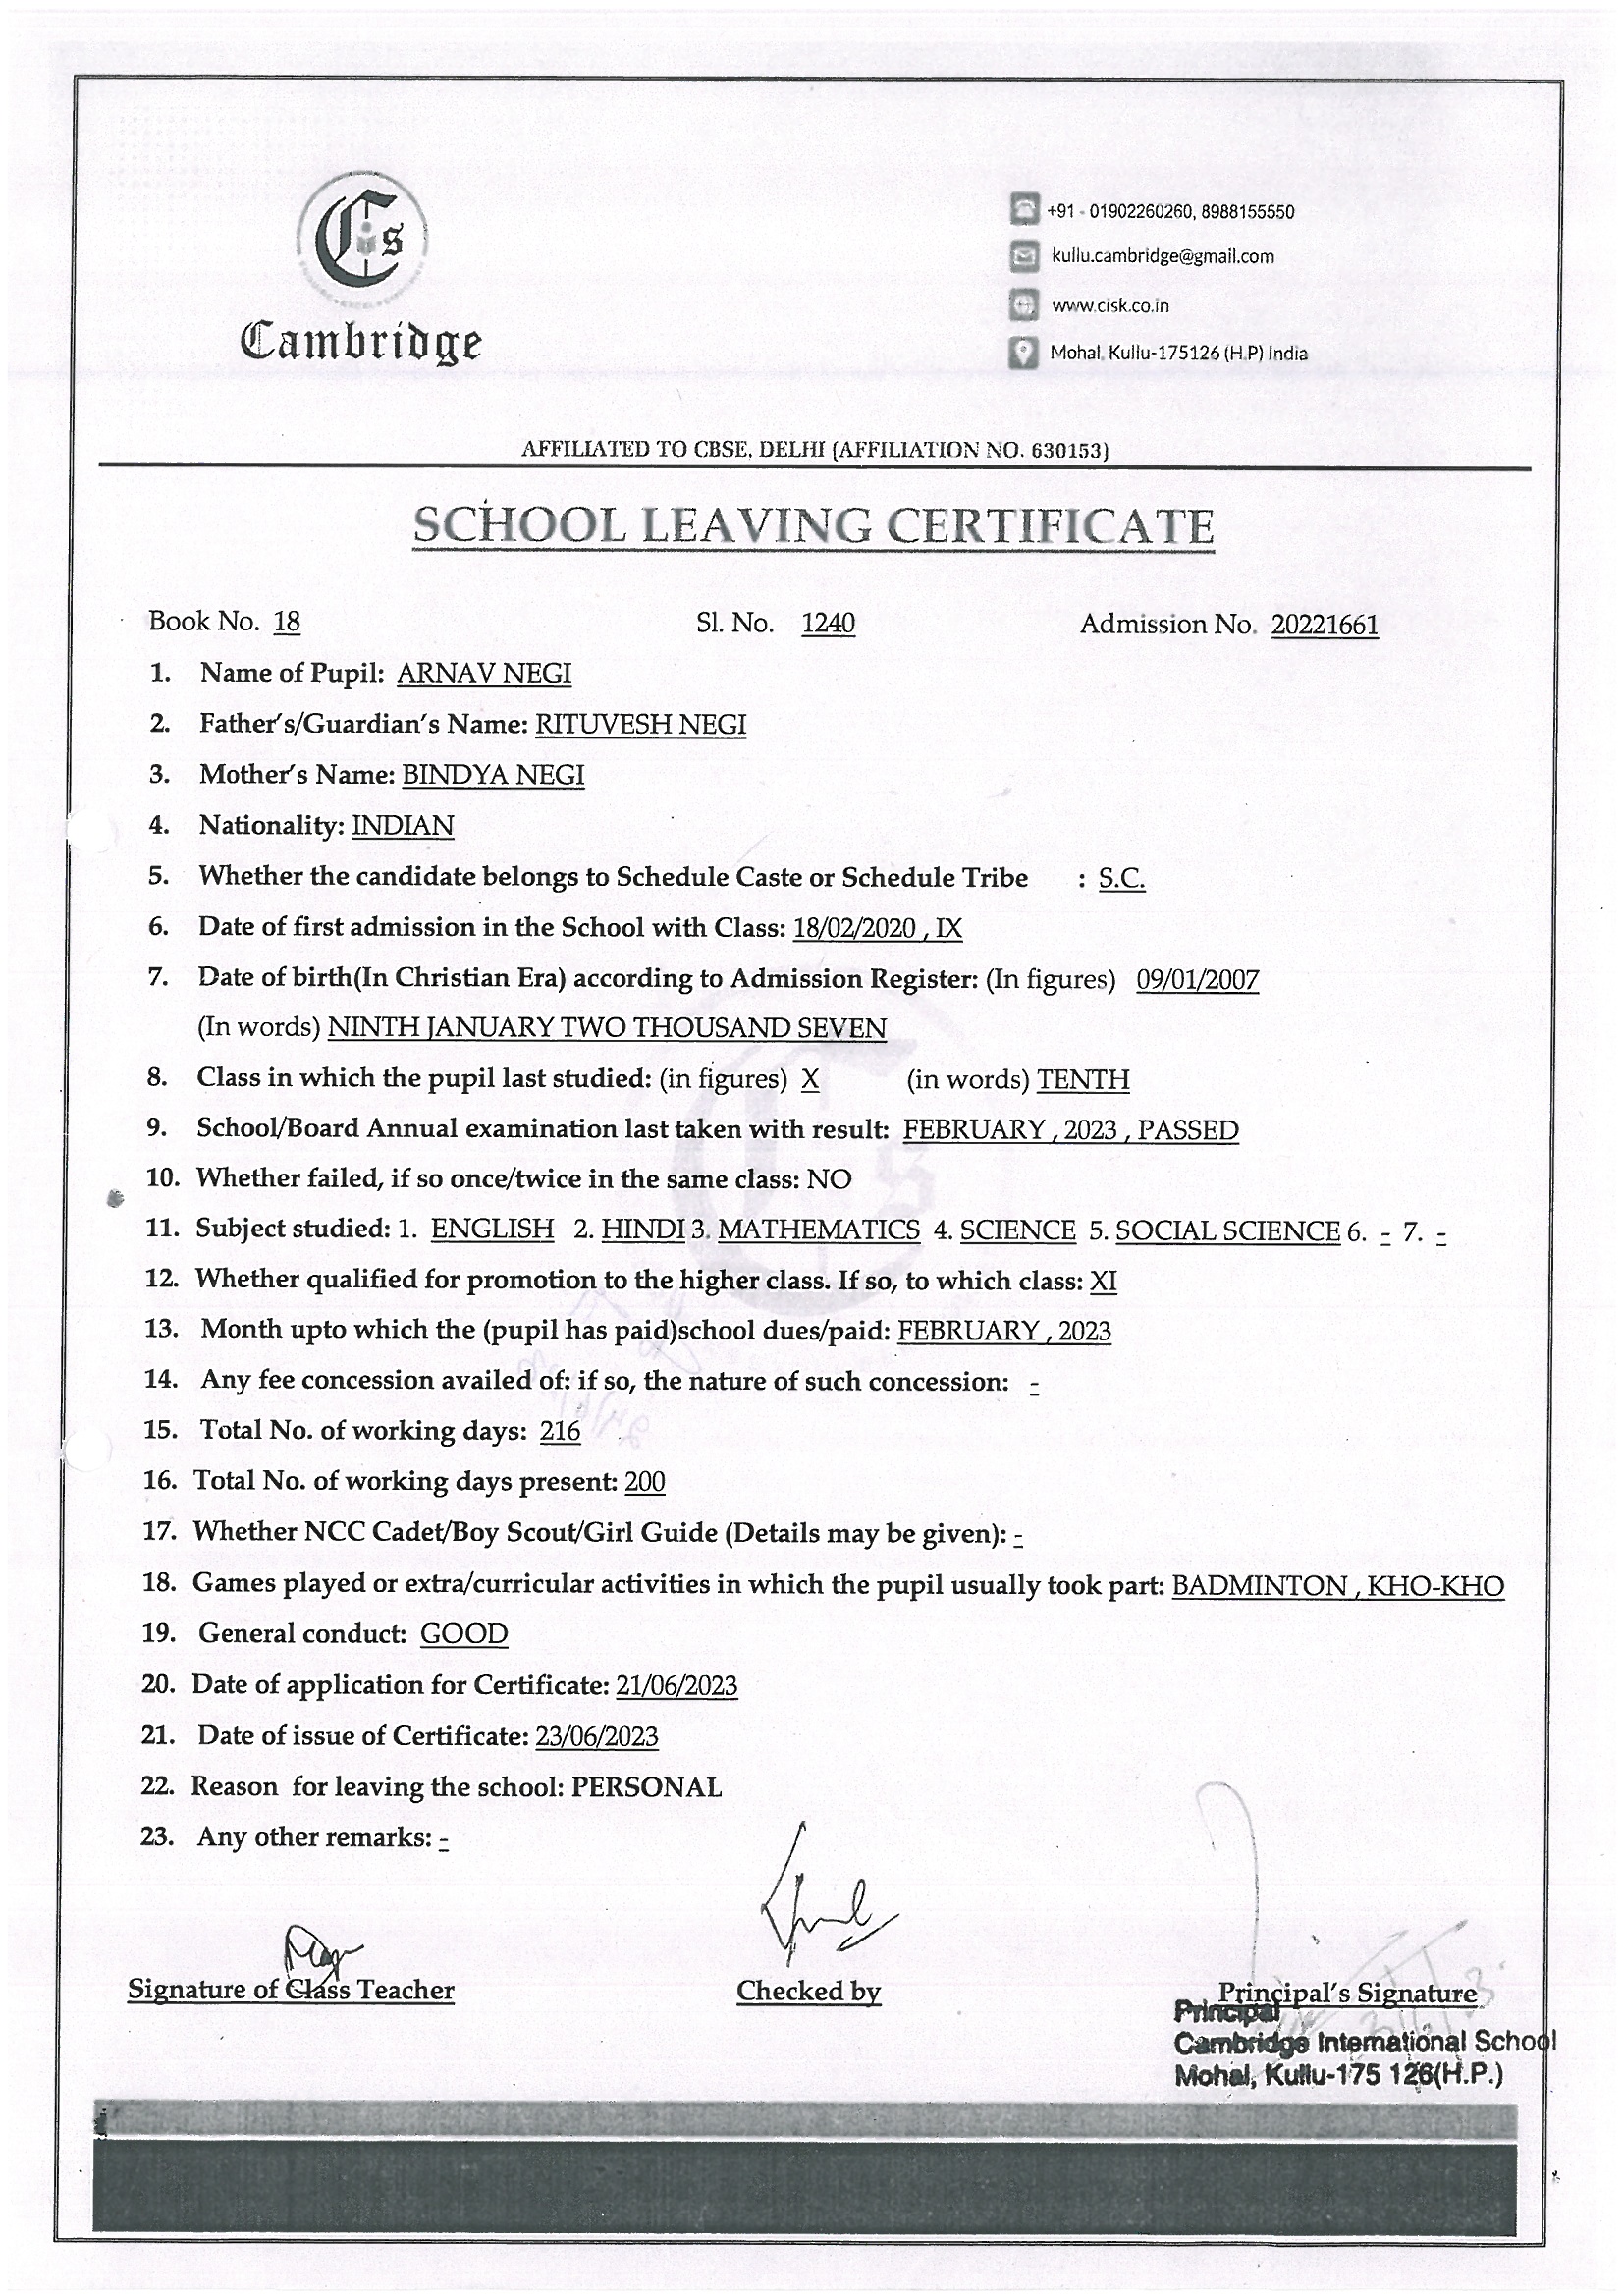 Cis
Cambridge
+91 - 01902260260, 8988155550
kullu.cambridge@gmail.com
www.cisk.co.in
Mohal, Kullu-175126 (H.P) India
AFFILIATED TO CBSE, DELHI (AFFILIATION NO. 630153)
SCHOOL LEAVING CERTIFICATE
Book No. 18 Sl. No. 1240 Admission No. 20221661
1. Name of Pupil: ARNAV NEGI
2. Father's/Guardian's Name: RITUVESH NEGI
3. Mother's Name: BINDYA NEGI
4. Nationality: INDIAN
5. Whether the candidate belongs to Schedule Caste or Schedule Tribe : S.C.
6. Date of first admission in the School with Class: 18/02/2020 , IX
7. Date of birth(In Christian Era) according to Admission Register: (In figures) 09/01/2007
(In words) NINTH JANUARY TWO THOUSAND SEVEN
8. Class in which the pupil last studied: (in figures) X (in words) TENTH
9. School/Board Annual examination last taken with result: FEBRUARY , 2023 , PASSED
10. Whether failed, if so once/twice in the same class: NO
11. Subject studied: 1. ENGLISH 2. HINDI 3. MATHEMATICS 4. SCIENCE 5. SOCIAL SCIENCE 6. - 7. -
12. Whether qualified for promotion to the higher class. If so, to which class: XI
13. Month upto which the (pupil has paid)school dues/paid: FEBRUARY , 2023
14. Any fee concession availed of: if so, the nature of such concession: -
15. Total No. of working days: 216
16. Total No. of working days present: 200
17. Whether NCC Cadet/Boy Scout/Girl Guide (Details may be given): -
18. Games played or extra/curricular activities in which the pupil usually took part: BADMINTON , KHO-KHO
19. General conduct: GOOD
20. Date of application for Certificate: 21/06/2023
21. Date of issue of Certificate: 23/06/2023
22. Reason for leaving the school: PERSONAL
23. Any other remarks: -
Signature of Class Teacher Checked by Principal's Signature
Principal
Cambridge International School
Mohal, Kullu-175 126(H.P.)